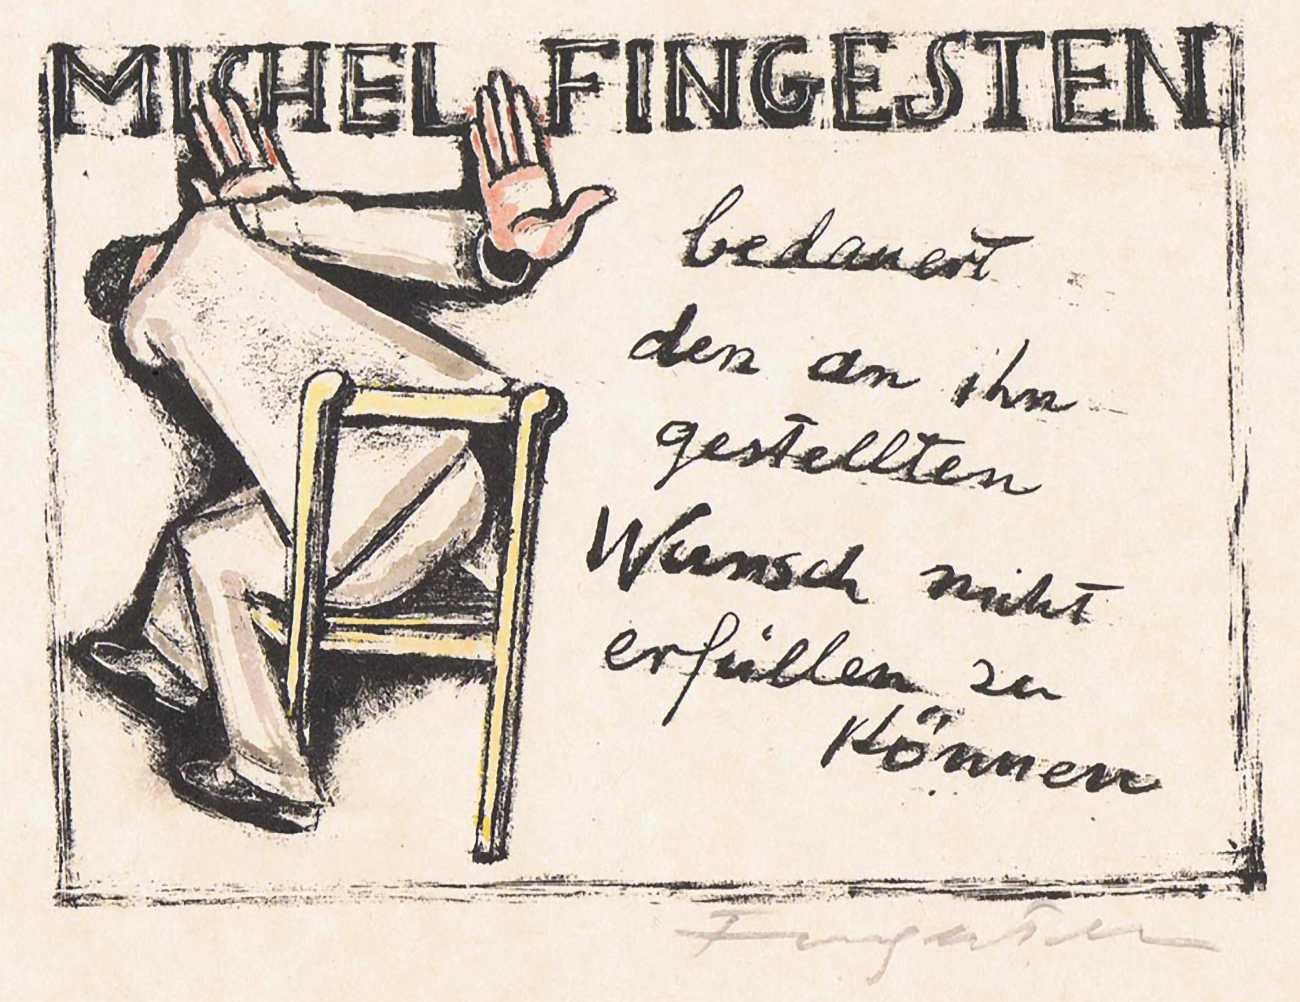 MICHEL FINGESTEN
bedauert
den an ihn
gestellten
Wunsch nicht
erfüllen zu
können
Fingesten